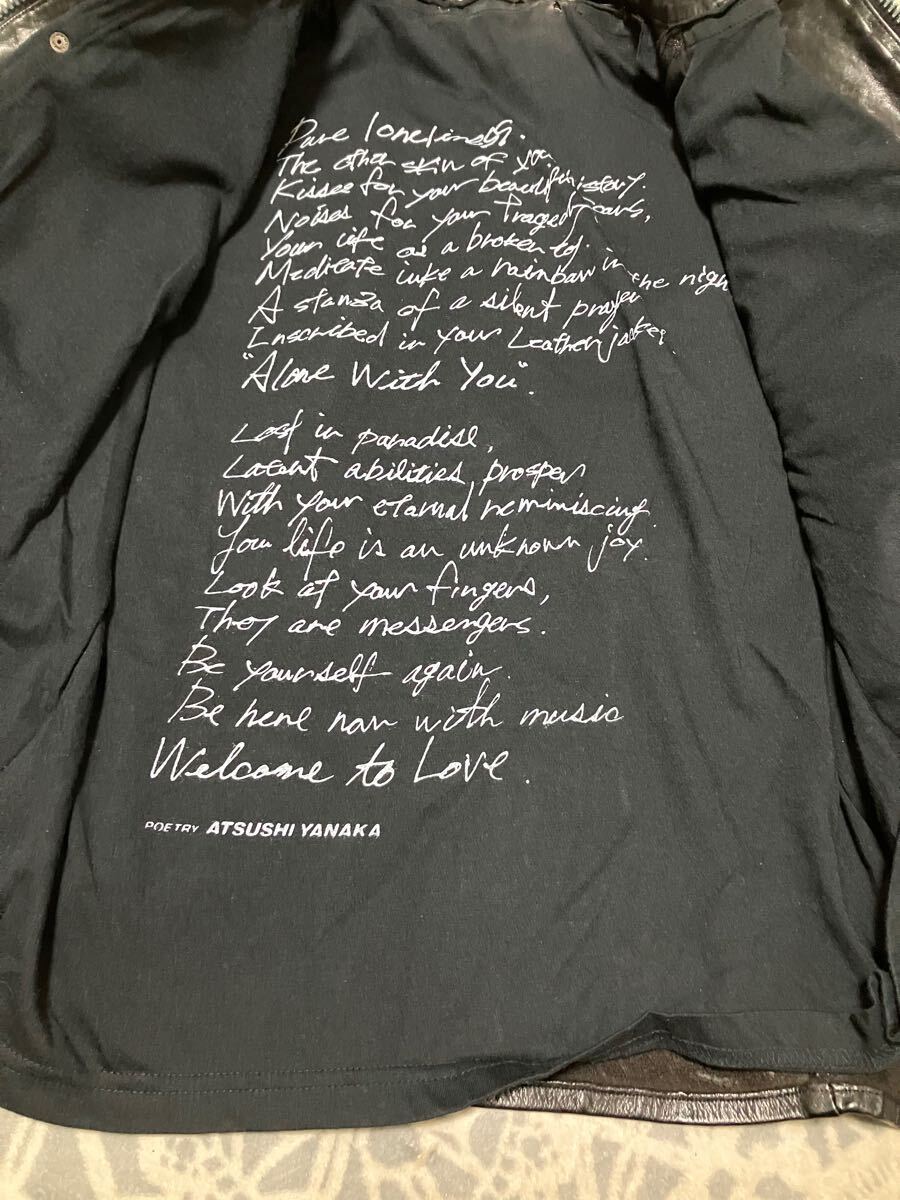 Pure loneliness.
The other skin of you
Kisses for your beautiful history.
Noises for your Tragedy
Your life as a broken toy.
Meditate like a rainbow in the nigh
A stanza of a silent prayer
Inscribed in your Leather jacket.
"Alone With You".
Lost in paradise,
Latent abilities prosper
With your eternal reminiscing.
Your life is an unknown joy.
Look at your fingers,
They are messengers.
Be yourself again.
Be here now with music
Welcome to Love.
POETRY ATSUSHI YANAKA